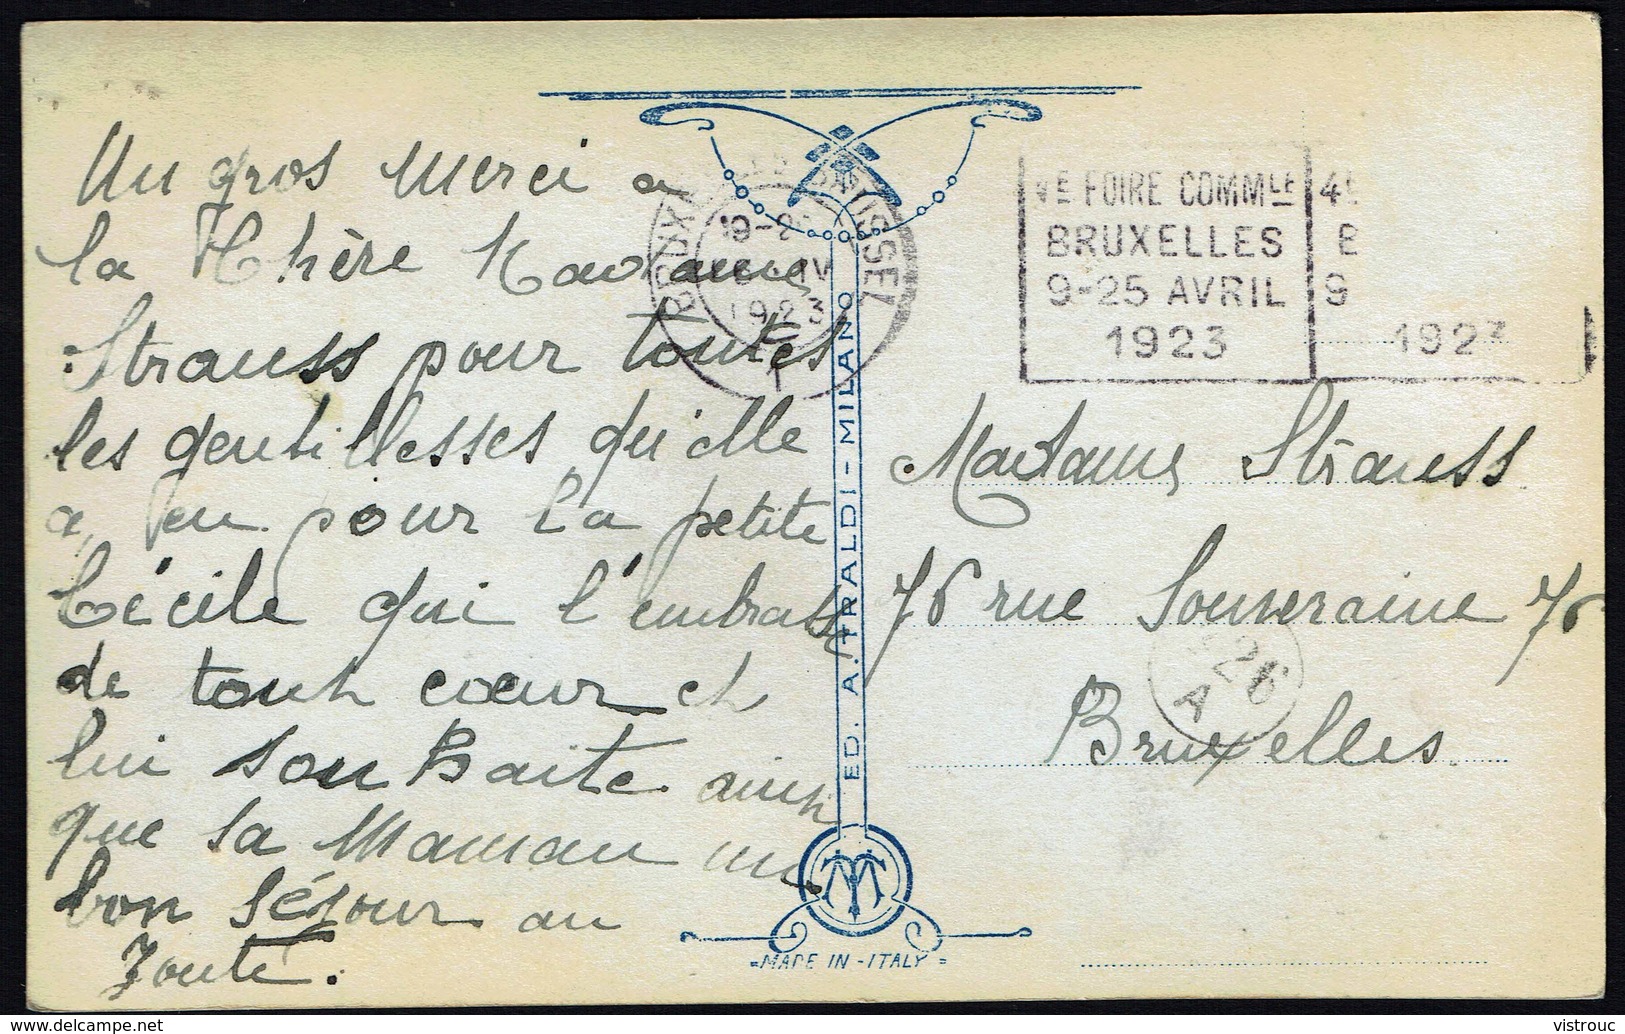 Un gros merci a
la Chère Madame
Strauss pour toutes
les gentillesses qu'elle
a eu pour la petite
Cécile qui l'embrasse
de tout cœur et
lui souhaite ainsi
que sa Maman un
bon séjour au
Zoute.
BRUXELLES BRUSSEL
19-2
IV
1923
4E FOIRE COMMLE
BRUXELLES
9-25 AVRIL
1923
4E
B
9
1923
Madame Strauss
76 rue Souveraine 76
Bruxelles
A 26
ED. A. TRALDI - MILANO
MADE IN - ITALY
delcampe.net
vistrouc